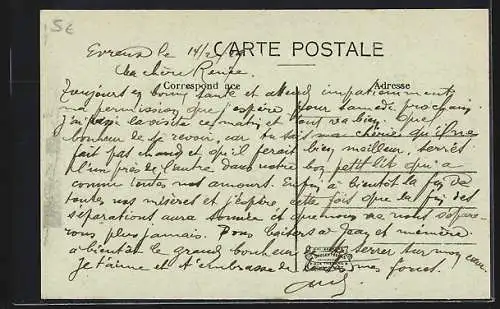 5€
CARTE POSTALE
Evreux le 14/2/
Ma chère Renée.
Correspondance
Adresse
Toujours en bonne santé et attend impatiemment
ma permission que j'espère pour samedi prochain.
J'ai passé la visite ce matin et tout va bien. Quel
bonheur de te revoir, car tu sais ma chérie qu'il ne
fait pas chaud et qu'il ferait bien meilleur, serrés
l'un près de l'autre dans notre bon petit lit qui a
connu toutes nos amours. Enfin à bientôt la fin de
toutes nos misères et j'espère, cette fois que la fin des
séparations aura sonnée et que nous ne nous sépare-
rons plus jamais. Bons baisers à Jean et mémère
à bientôt le grand bonheur de te serrer sur mon cœur.
Je t'aime et t'embrasse de toutes mes forces.